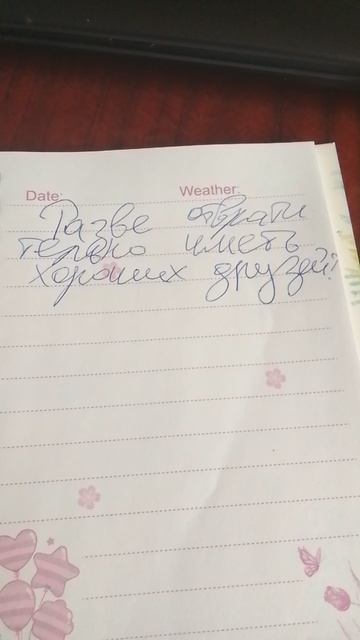 Date: Weather:
Разве
иметь
хороших друзей?